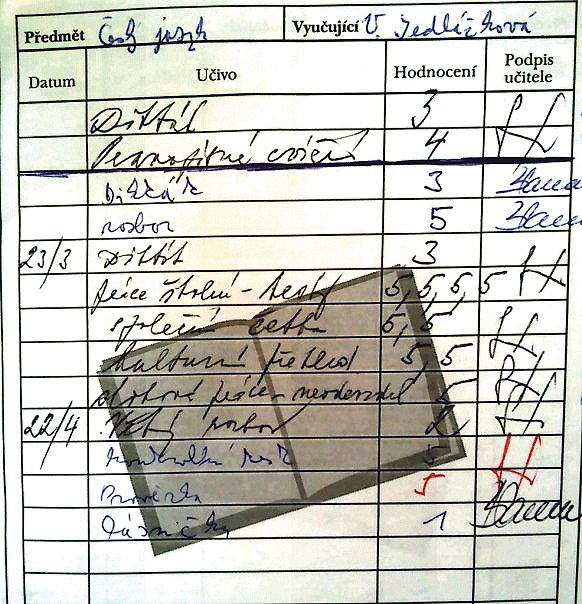 Předmět Český jazyk Vyučující V. Jedlážková
Datum Učivo Hodnocení Podpis učitele
Diktát 3
Pravopisné cvičení 4
Diktát 3
rozbor 5
23/3 Diktát 3
práce školní - testy 5, 5, 5, 5
společná četba 5, 5
kulturní přehled 5, 5
slohová práce - neodevzdal 5
22/4 Větný rozbor 2
kontrolní test 5
Prověrka 5
básnička 1